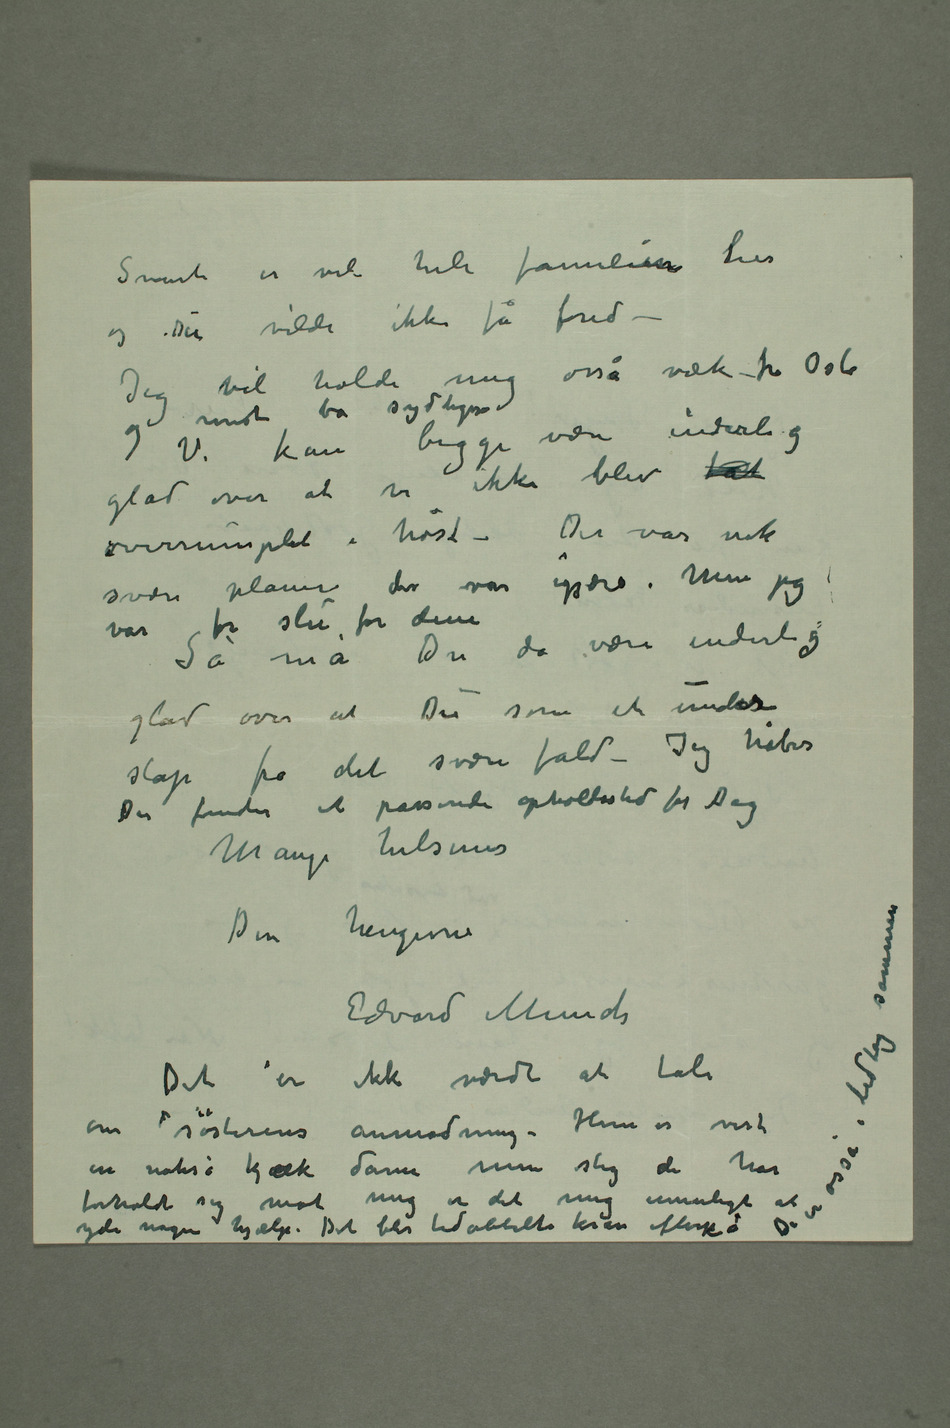 Snart er vel hele familien her
og Du vilde ikke få fred –
Jeg vil holde mig osså væk fra Oslo
og mest bo sydligere
Vi kan begge være inderlig
glad over at vi ikke blev tat
overrumplet i høst – Der var nok
svære planer der var igjære. Men jeg
var for slu for dem
Så må Du da være inderlig
glad over at Du som et under
slap fra det svære fald – Jeg håber
Du finder et passende opholdssted for Dag
Mange hilsener
Din hengivne
Edvard Munch
Det er ikke værdt at tale
om søsterens anmodning. Hun er vist
en nokså kjæk dame men slig de har
forholdt sig mot mig er det mig umuligt at
yde nogen hjælp. Det blir ledobbelte krav efterpå
De osså i ledtog sammen